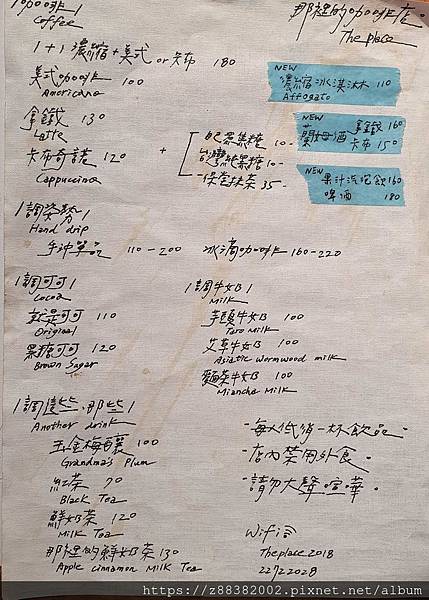 咖啡
Coffee
那裡的咖啡店。
The place
1+1 濃縮+美式 or 卡布 180
美式咖啡 100
Americano
NEW
濃縮冰淇淋 110
Affogato
拿鐵 130
Latte
NEW
拿鐵 160
卡布 150
卡布奇諾 120
Cappuccino
+
巴黑黑糖 10-
台灣黑糖 10-
抹茶 35-
NEW
果汁汽泡飲 160
啤酒 180
調姿勢
Hand drip
手沖單品 110-200
冰滴咖啡 160-220
調可可
Cocoa
就是可可 110
Original
黑糖可可 120
Brown Sugar
調牛奶
Milk
芋頭牛奶 100
Taro Milk
艾草牛奶 100
Asiatic wormwood milk
麵茶牛奶 100
Miancha Milk
調這些、那些
Another drink
梅釀 100
Grandma's Plum
紅茶 70
Black Tea
鮮奶茶 120
Milk Tea
那裡的鮮奶茶 130
Apple cinnamon Milk Tea
-每人低消一杯飲品。
-店內禁用外食。
-請勿大聲喧嘩。
Wifi
Theplace2018
22722028
https://z88382002.pixnet.net/album